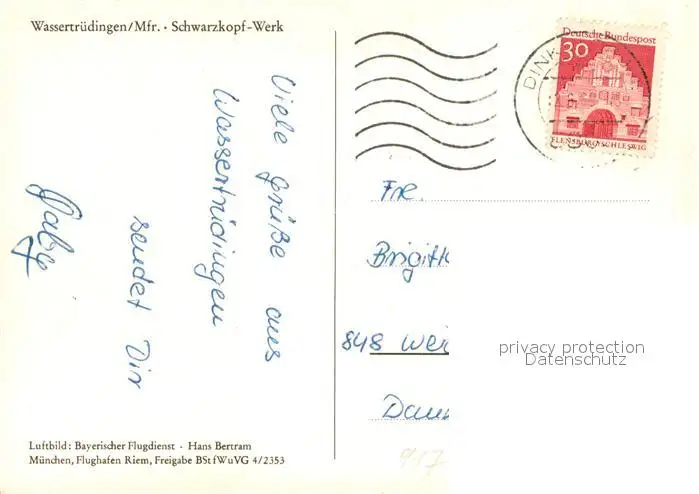 Wassertrüdingen/Mfr. · Schwarzkopf-Werk
Viele Grüße aus
Wassertrüdingen
sendet Dir
Deutsche Bundespost
30
FLENSBURG/SCHLESWIG
DINK
Frl.
Brigit
848 Wei
privacy protection
Datenschutz
Luftbild: Bayerischer Flugdienst · Hans Bertram
München, Flughafen Riem, Freigabe BStfWuVG 4/2353
917